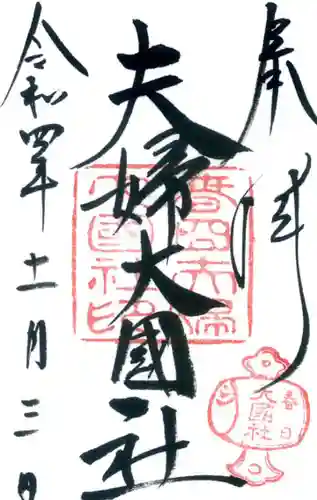 奉拝
夫婦大國社
令和四年十一月三日
春日
夫婦大國社印
春日
大國社